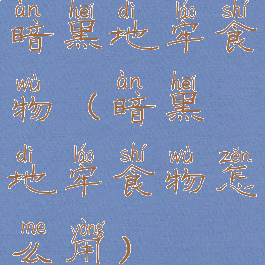 àn hēi dì láo shí
暗黑地牢食
wù àn hēi
物(暗黑
dì láo shí wù zěn
地牢食物怎
me yòng
么用)